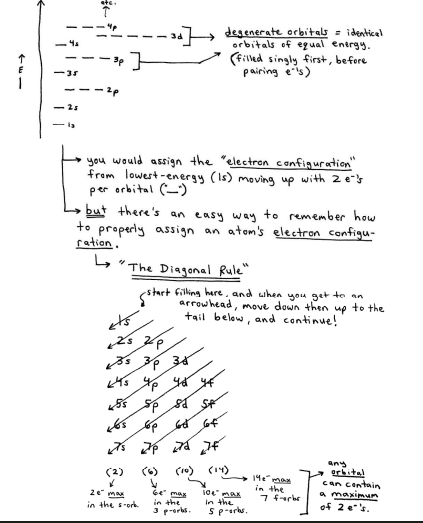 etc.
4p
3d
4s
3p
3s
2p
2s
1s
↑ E
degenerate orbitals = identical
orbitals of equal energy.
(filled singly first, before
pairing e⁻'s)
you would assign the "electron configuration"
from lowest-energy (1s) moving up with 2 e⁻'s
per orbital ("_")
but there's an easy way to remember how
to properly assign an atom's electron configu-
ration.
"The Diagonal Rule"
start filling here, and when you get to an
arrowhead, move down then up to the
tail below, and continue!
1s
2s 2p
3s 3p 3d
4s 4p 4d 4f
5s 5p 5d 5f
6s 6p 6d 6f
7s 7p 7d 7f
(2) (6) (10) (14)
2e⁻ max
in the s-orb.
6e⁻ max
in the
3 p-orbs.
10e⁻ max
in the
5 p-orbs.
14e⁻ max
in the
7 f-orbs
any
orbital
can contain
a maximum
of 2 e⁻'s.